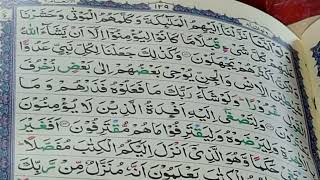 اَنَّنَا نَزَّلْنَاۤ اِلَيْهِمُ الْمَلٰٓئِكَةَ وَكَلَّمَهُمُ الْمَوْتٰى وَحَشَرْنَا
كُلَّ شَیْءٍ قُبُلًا مَّا كَانُوْا لِيُؤْمِنُوْۤا اِلَّاۤ اَنْ يَّشَآءَ اللّٰهُ
يَجْهَلُوْنَ وَكَذٰلِكَ جَعَلْنَا لِكُلِّ نَبِیٍّ عَدُوًّا
الْاِنْسِ وَالْجِنِّ يُوْحِیْ بَعْضُهُمْ اِلٰى بَعْضٍ زُخْرُفَ
غُرُوْرًا وَلَوْ شَآءَ رَبُّكَ مَا فَعَلُوْهُ فَذَرْهُمْ وَمَا
وَلِتَصْغٰۤى اِلَيْهِ اَفْـِٕدَةُ الَّذِيْنَ لَا يُؤْمِنُوْنَ
وَلِيَرْضَوْهُ وَلِيَقْتَرِفُوْا مَا هُمْ مُّقْتَرِفُوْنَ اَفَغَيْرَ
حَكَمًا وَّهُوَ الَّذِیْۤ اَنْزَلَ اِلَيْكُمُ الْكِتٰبَ مُفَصَّلًا
الْكِتٰبَ يَعْلَمُوْنَ اَنَّهٗ مُنَزَّلٌ مِّنْ رَّبِّكَ